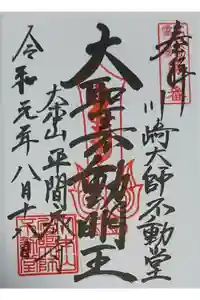 奉拝
川崎大師不動堂
大聖不動明王
大本山 平間寺
令和元年八月十六日